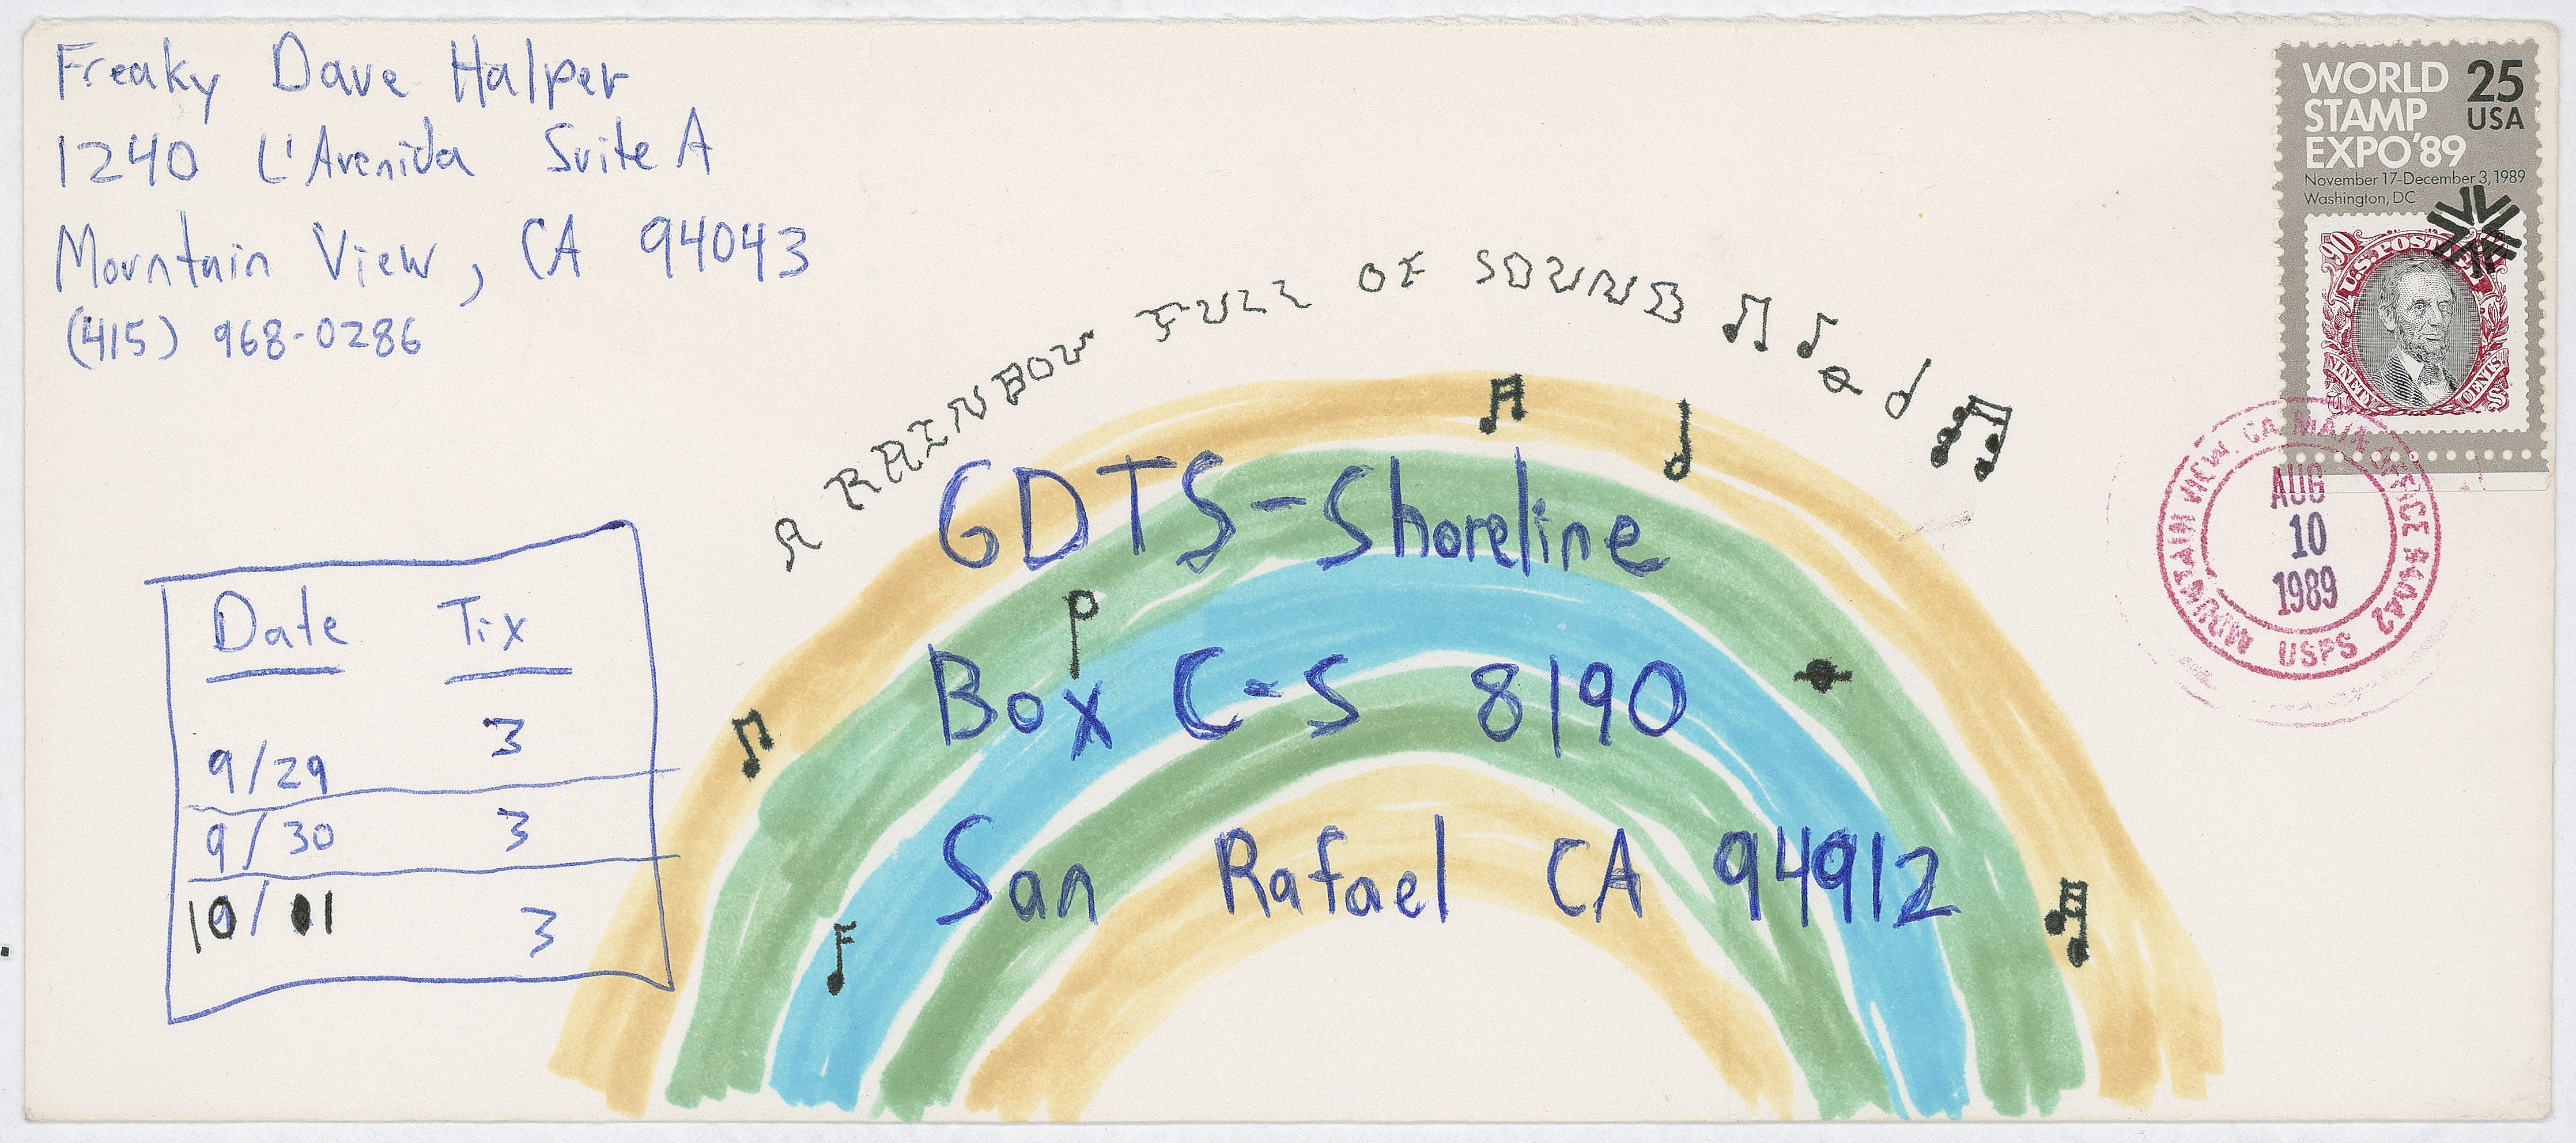 Freaky Dave Halper
1240 L'Avenida Suite A
Mountain View, CA 94043
(415) 968-0286
WORLD
STAMP
EXPO'89
25
USA
November 17-December 3, 1989
Washington, DC
90
U.S. POSTAGE
NINETY CENTS
MOUNTAIN VIEW, CA MAIN OFFICE 94042
USPS
AUG
10
1989
A RAINBOW FULL OF SOUND
GDTS-Shoreline
Box C-S 8190
San Rafael CA 94912
Date Tix
9/29 3
9/30 3
10/01 3